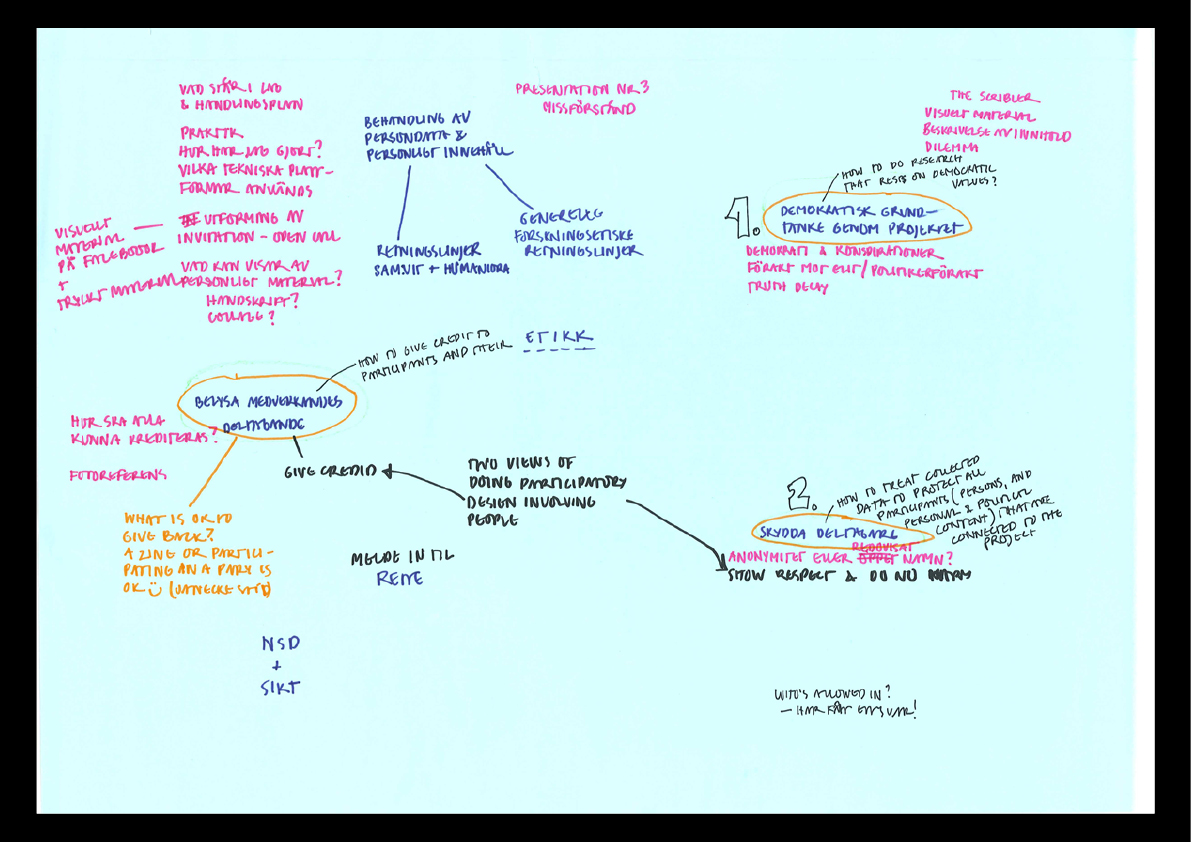 VAD STÅR I LAG
& HANDLINGSPLAN
PRAKTIK
HUR HAR JAG GJORT?
VILKA TEKNISKA PLATT-
FORMAR ANVÄNDS
UTFORMING AV
INVITATION - OPEN CALL
VAD KAN VISAS AV
PERSONLIGT MATERIAL?
HANDSKRIFT?
COLLAGE?
VISUELLT
MATERIAL
PÅ FACEBOOK
+
TRYCKT MATERIAL
BEHANDLING AV
PERSONDATA &
PERSONLIGT INNEHÅLL
RETNINGSLINJER
SAMVIT + HUMANIORA
GENERELLE
FORSKNINGSETISKE
RETNINGSLINJER
PRESENTATION NR.3
MISSFÖRSTÅND
THE SCRIBLER
VISUELT MATERIAL
BESKRIVELSE AV INNHOLD
DILEMMA
HOW TO DO RESEARCH
THAT RESTS ON DEMOCRATIC
VALUES?
1.
DEMOKRATISK GRUND-
TANKE GENOM PROJEKTET
DEMOKRATI & KONSPIRATIONER
FÖRAKT MOT ELIT/POLITIKERFÖRAKT
TRUTH DECAY
ETIKK
HOW TO GIVE CREDIT TO
PARTICIPANTS AND THEIR
BELYSA MEDVERKANDES
DELTAGANDE
HUR SKA ALLA
KUNNA KREDITERAS?
FOTOREFERENS
GIVE CREDID
WHAT IS OK TO
GIVE BACK?
A ZINE OR PARTICI-
PATING AN A PARY IS
OK
TWO VIEWS OF
DOING PARTICIPATORY
DESIGN INVOLVING
PEOPLE
MELDE IN TIL
RETTE
NSD
+
SIKT
2.
HOW TO TREAT COLLECTED
DATA TO PROTECT ALL
PARTICIPANTS (PERSONS, AND
PERSONAL & POLITICAL
CONTENT) THAT ARE
CONNECTED TO THE
PROJECT
SKYDDA DELTAGARE
REDOVISAT
ANONYMITET ELLER ÖPPET NAMN?
SHOW RESPECT & DO NO HARM
WHO'S ALLOWED IN?
- HAR FÅTT ETT SVAR!